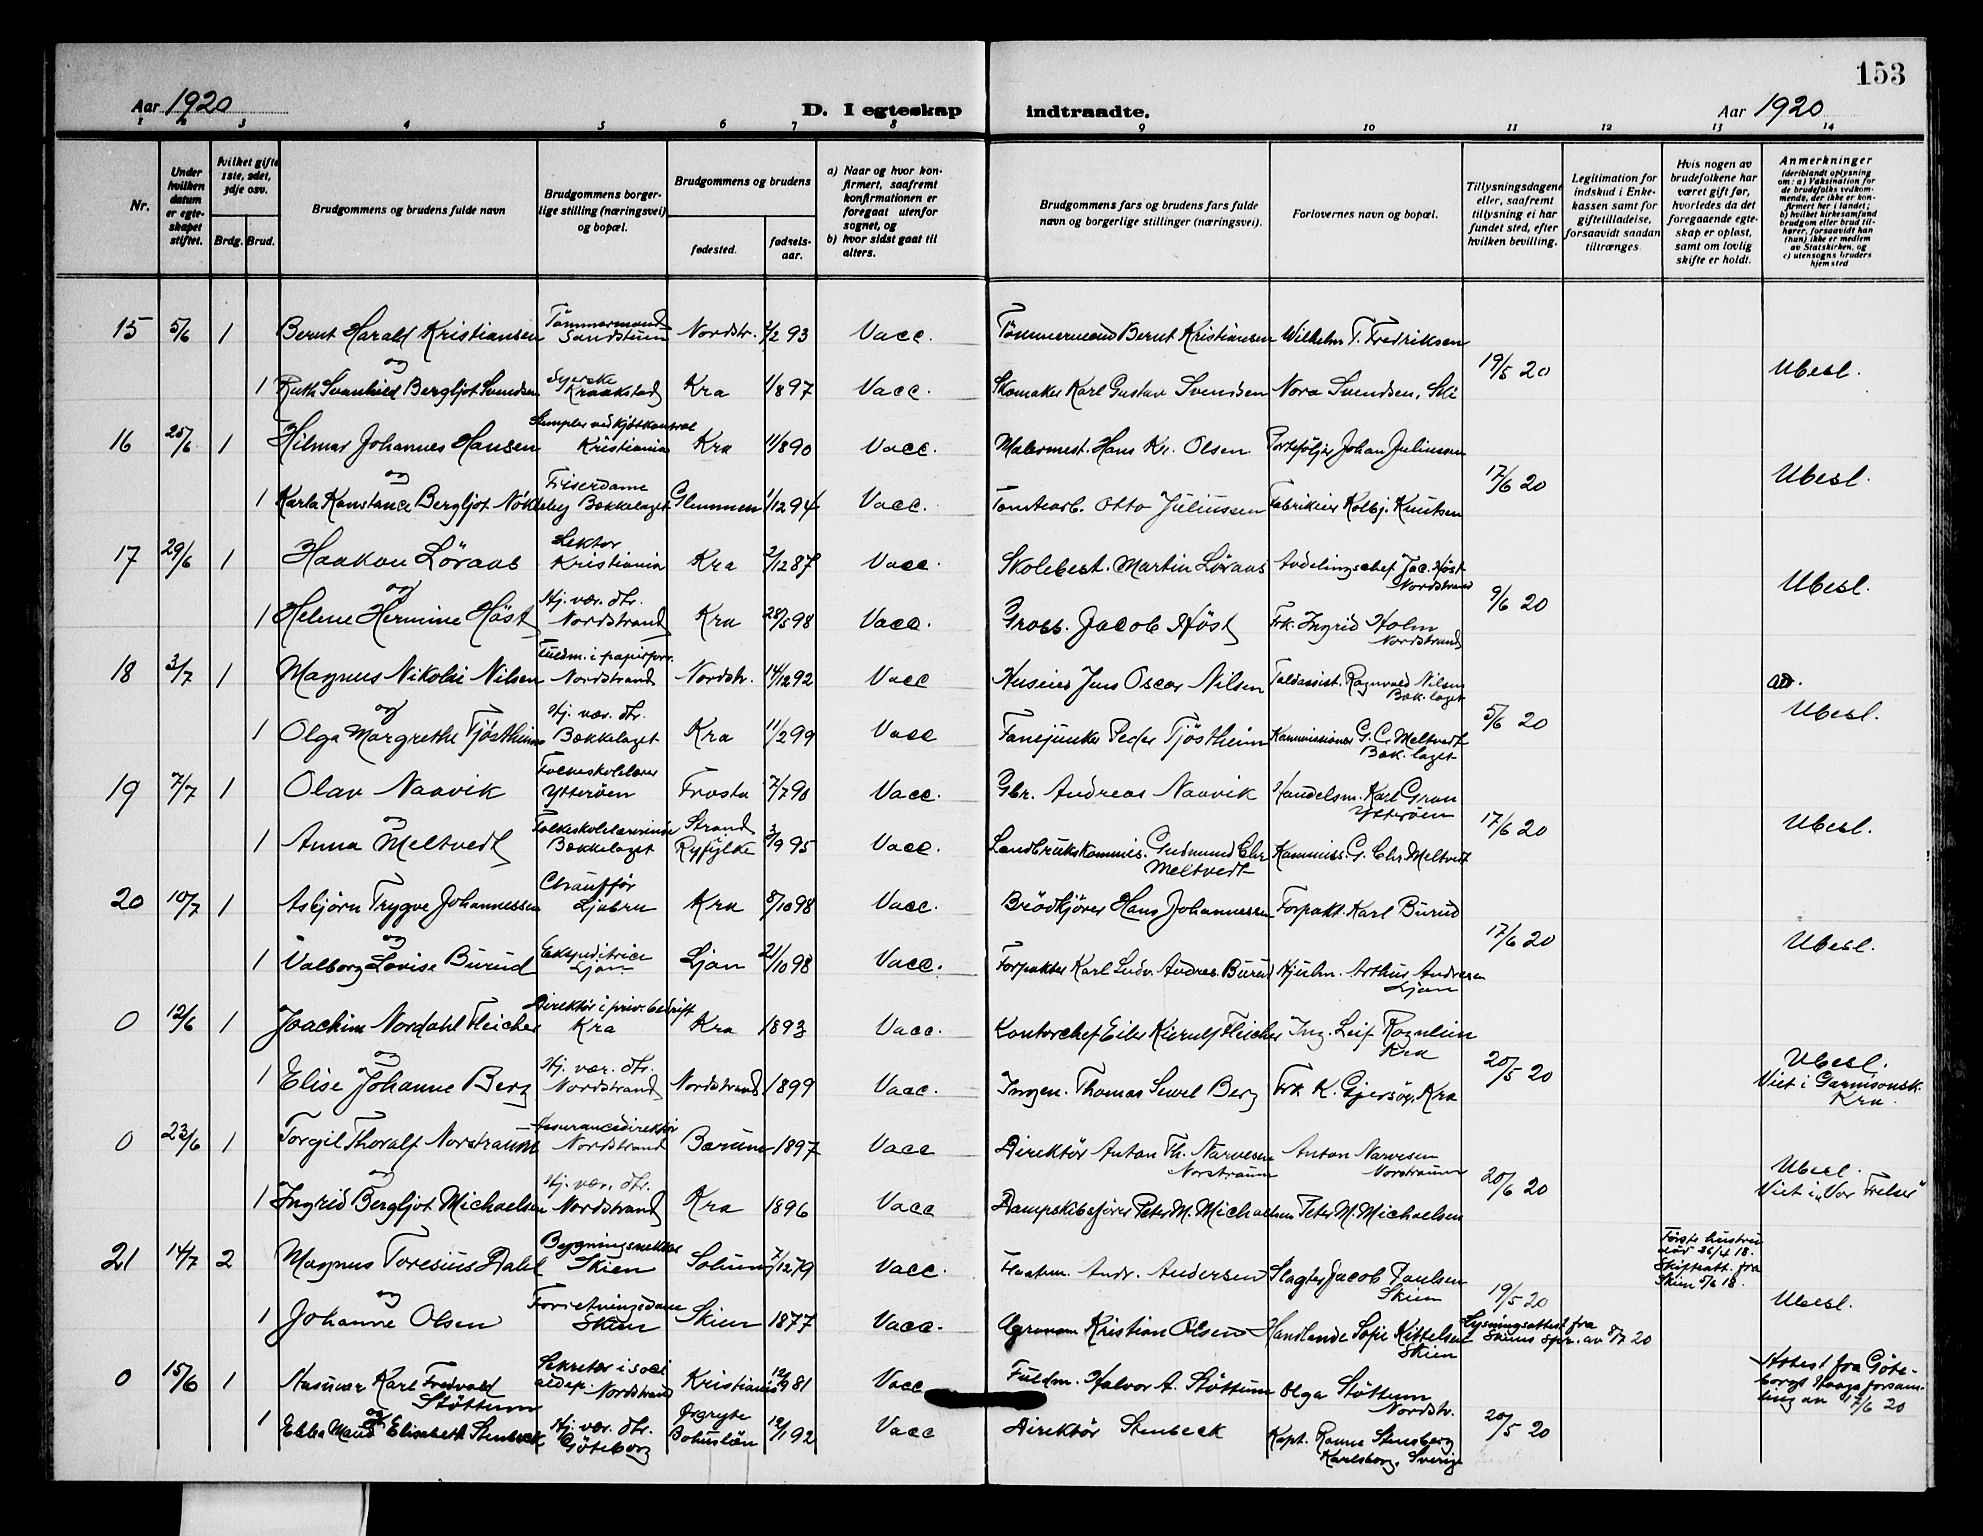 153
Aar 1920 D. I egteskap indtraadte. Aar 1920
1 2 3 4 5 6 7 8 9 10 11 12 13 14
Nr.
Under hvilken datum er egteskapet stiftet.
hvilket gifte 1ste, 2det, 3dje osv.
Brdg. Brud.
Brudgommens og brudens fulde navn
Brudgommens borgerlige stilling (næringsvei) og bopæl.
Brudgommens og brudens
fødested.
fødselsaar.
a) Naar og hvor konfirmert, saafremt konfirmationen er foregaat utenfor sognet, og
b) hvor sidst gaat til alters.
Brudgommens fars og brudens fars fulde navn og borgerlige stillinger (næringsvei).
Forlovernes navn og bopæl.
Tillysningsdagene eller, saafremt tillysning ei har fundet sted, efter hvilken bevilling.
Legitimation for indskud i Enkekassen samt for giftetilladelse, forsaavidt saadan tiltrænges
Hvis nogen av brudefolkene har været gift før, hvorledes da det foregaaende egteskap er opløst, samt om lovlig skifte er holdt.
Anmerkninger (deriblandt oplysning om: a) Vaksination for de brudefolks vedkommende, der ikke er konfirmert her i landet; b) hvilket kirkesamfund brudgom eller brud tilhører, forsaavidt han (hun) ikke er medlem av Statskirken, og c) utensogns bruders hjemsted
15 5/6 1 Bernt Harald Kristiansen Tömmermand Sandstuen Nordstr. 2/2 93 Vacc. Tömmermand Bernt Kristiansen Wilhelm T. Fredriksen
og 19/5 20 Ubesl.
1 Ruth Svanhild Bergljot Svendsen Syerske Kraakstad Kra 1/8 97 Vacc. Skomaker Karl Gustav Svendsen Nora Svendsen, Ski
16 25/6 1 Hilmar Johannes Hansen Stempler ved kjøtkontrol Kristiania Kra 11/8 90 Vacc. Malermest. Hans Kr. Olsen Portefölje Johan Juliussen
og 17/6 20 Ubesl.
1 Karla Konstance Bergljot Nökleby Friserdame Bækkelaget Glemmen 1/12 94 Vacc. Tomtearb. Otto Juliussen Fabrikeier Kolbj. Knutsen
17 29/6 1 Haakon Löraas Lektor Kristiania Kra 2/12 87 Vacc. Skolebest. Martin Löraas Avdelingschef Jac. Höst Nordstrand
og 9/6 20 Ubesl.
1 Helene Hermine Höst Hj. vær. dtr. Nordstrand Kra 28/5 98 Vacc. Gross. Jacob Höst Frk. Ingrid Holm Nordstrand
18 3/7 1 Magnus Nikolai Nilsen Fuldm. i papirforr. Nordstrand Nordstr. 14/12 92 Vacc Huseier Jens Oscar Nilsen Toldassist. Ragnvald Nilsen Bæk.laget
og 5/6 20 Ubesl.
1 Olga Margrethe Tjöstheim Hj. vær. dtr. Bækkelaget Kra 11/2 99 Vacc Fanejunker Peder Tjöstheim Kommissionær G. C. Meltvedt Bæk.laget
19 7/7 1 Olav Naavik Folkeskolelærer Ytterøen Frosta 7/7 90 Vacc. Gbr. Andreas Naavik Handelsm. Karl Gran Ytterøen
og 17/6 20 Ubesl.
1 Anna Meltvedt Folkeskolelærerinde Bækkelaget Strand i Ryfylke 3/9 95 Vacc. Landbrukskommis. Gudmund Chr Meltvedt Kommiss. G. Chr Meltvedt
20 10/7 1 Asbjörn Trygve Johannessen Chauffør Ljabru Kra 8/10 98 Vacc. Brödkjörer Hans Johannessen Forpakt. Karl Burud
og 17/6 20 Ubesl.
1 Valborg Lovise Burud Ekspeditrice Ljan Ljan 21/10 98 Vacc. Forpakter Karl Ludv. Andreas Burud Hjulm. Arthur Andresen Ljan
0 12/6 1 Joachim Nordahl Fleicher Direktör i priv. bedrift Kra Kra 1893 Vacc. Kontorchef Eiler Kierulf Fleicher Ing. Leif Rognlien Kra
og 20/5 20 Ubesl. Viet i Garnisonsk. Kra.
1 Elise Johanne Berg Hj. vær. dtr. Nordstrand Nordstrand 1899 Vacc. Ingen. Thomas Sewel Berg Frk K. Gjersöe, Kra
0 23/6 1 Torgil Thoralf Norstraum Assurancedirektör Nordstrand Bærum 1897 Vacc Direktör Anton Th. Narvesen Norstraum Anton Narvesen Norstraum
og 20/6 20 Ubesl. Viet i "Vor Frelser"
1 Ingrid Bergljot Michaelsen Hj. vær. dtr. Nordstrand Kra 1896 Vacc Dampskibsförer Peter M. Michaelsen Peter M. Michaelsen
21 14/7 2 Magnus Toresius Dahl Bygningssnekker Skien Solum 7/12 79 Vacc. Fløtm. Andr. Andersen Slagter Jacob Paulsen Skien Første hustru död 26/4 18. Skifteatt. fra Skien 5/6 18.
og 19/5 20 Ubesl.
1 Johanne Olsen Forretningsdame Skien Skien 1877 Vacc. Agronom Kristian Olsen Handlende Sofie Kittelsen Skien Lysningsattest fra Skiens spr. av 8/7 20
0 15/6 1 Rasmus Karl Fredvald Stöttum Sekretær i soci aldep. Nordstrand Kristiania 12/9 81 Vacc Fuldm. Halvor A. Stöttum Olga Stöttum Nordstr. Attest fra Göteborgs Haga forsamling av 17/6 20
og 20/5 20
1 Ebba Maud Elisabeth Stenbeck Hj. vær. dtr. Göteborg Örgryte Bohuslän 12/1 92 Vacc Direktör Stenbeck Kapt. Ragnar Stensberg Karlsborg, Sverige